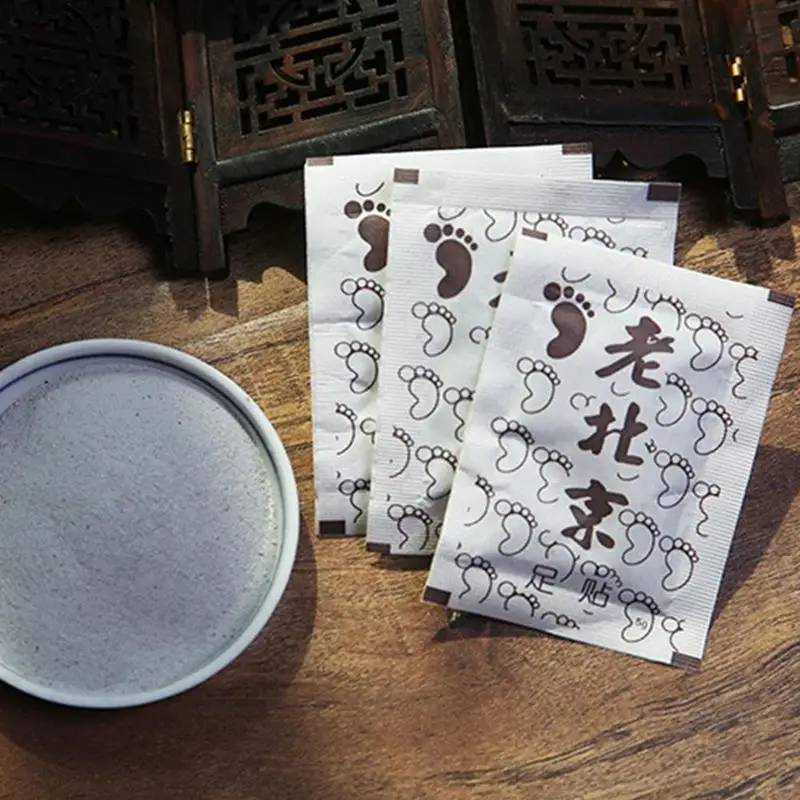 老北京
足贴
5g